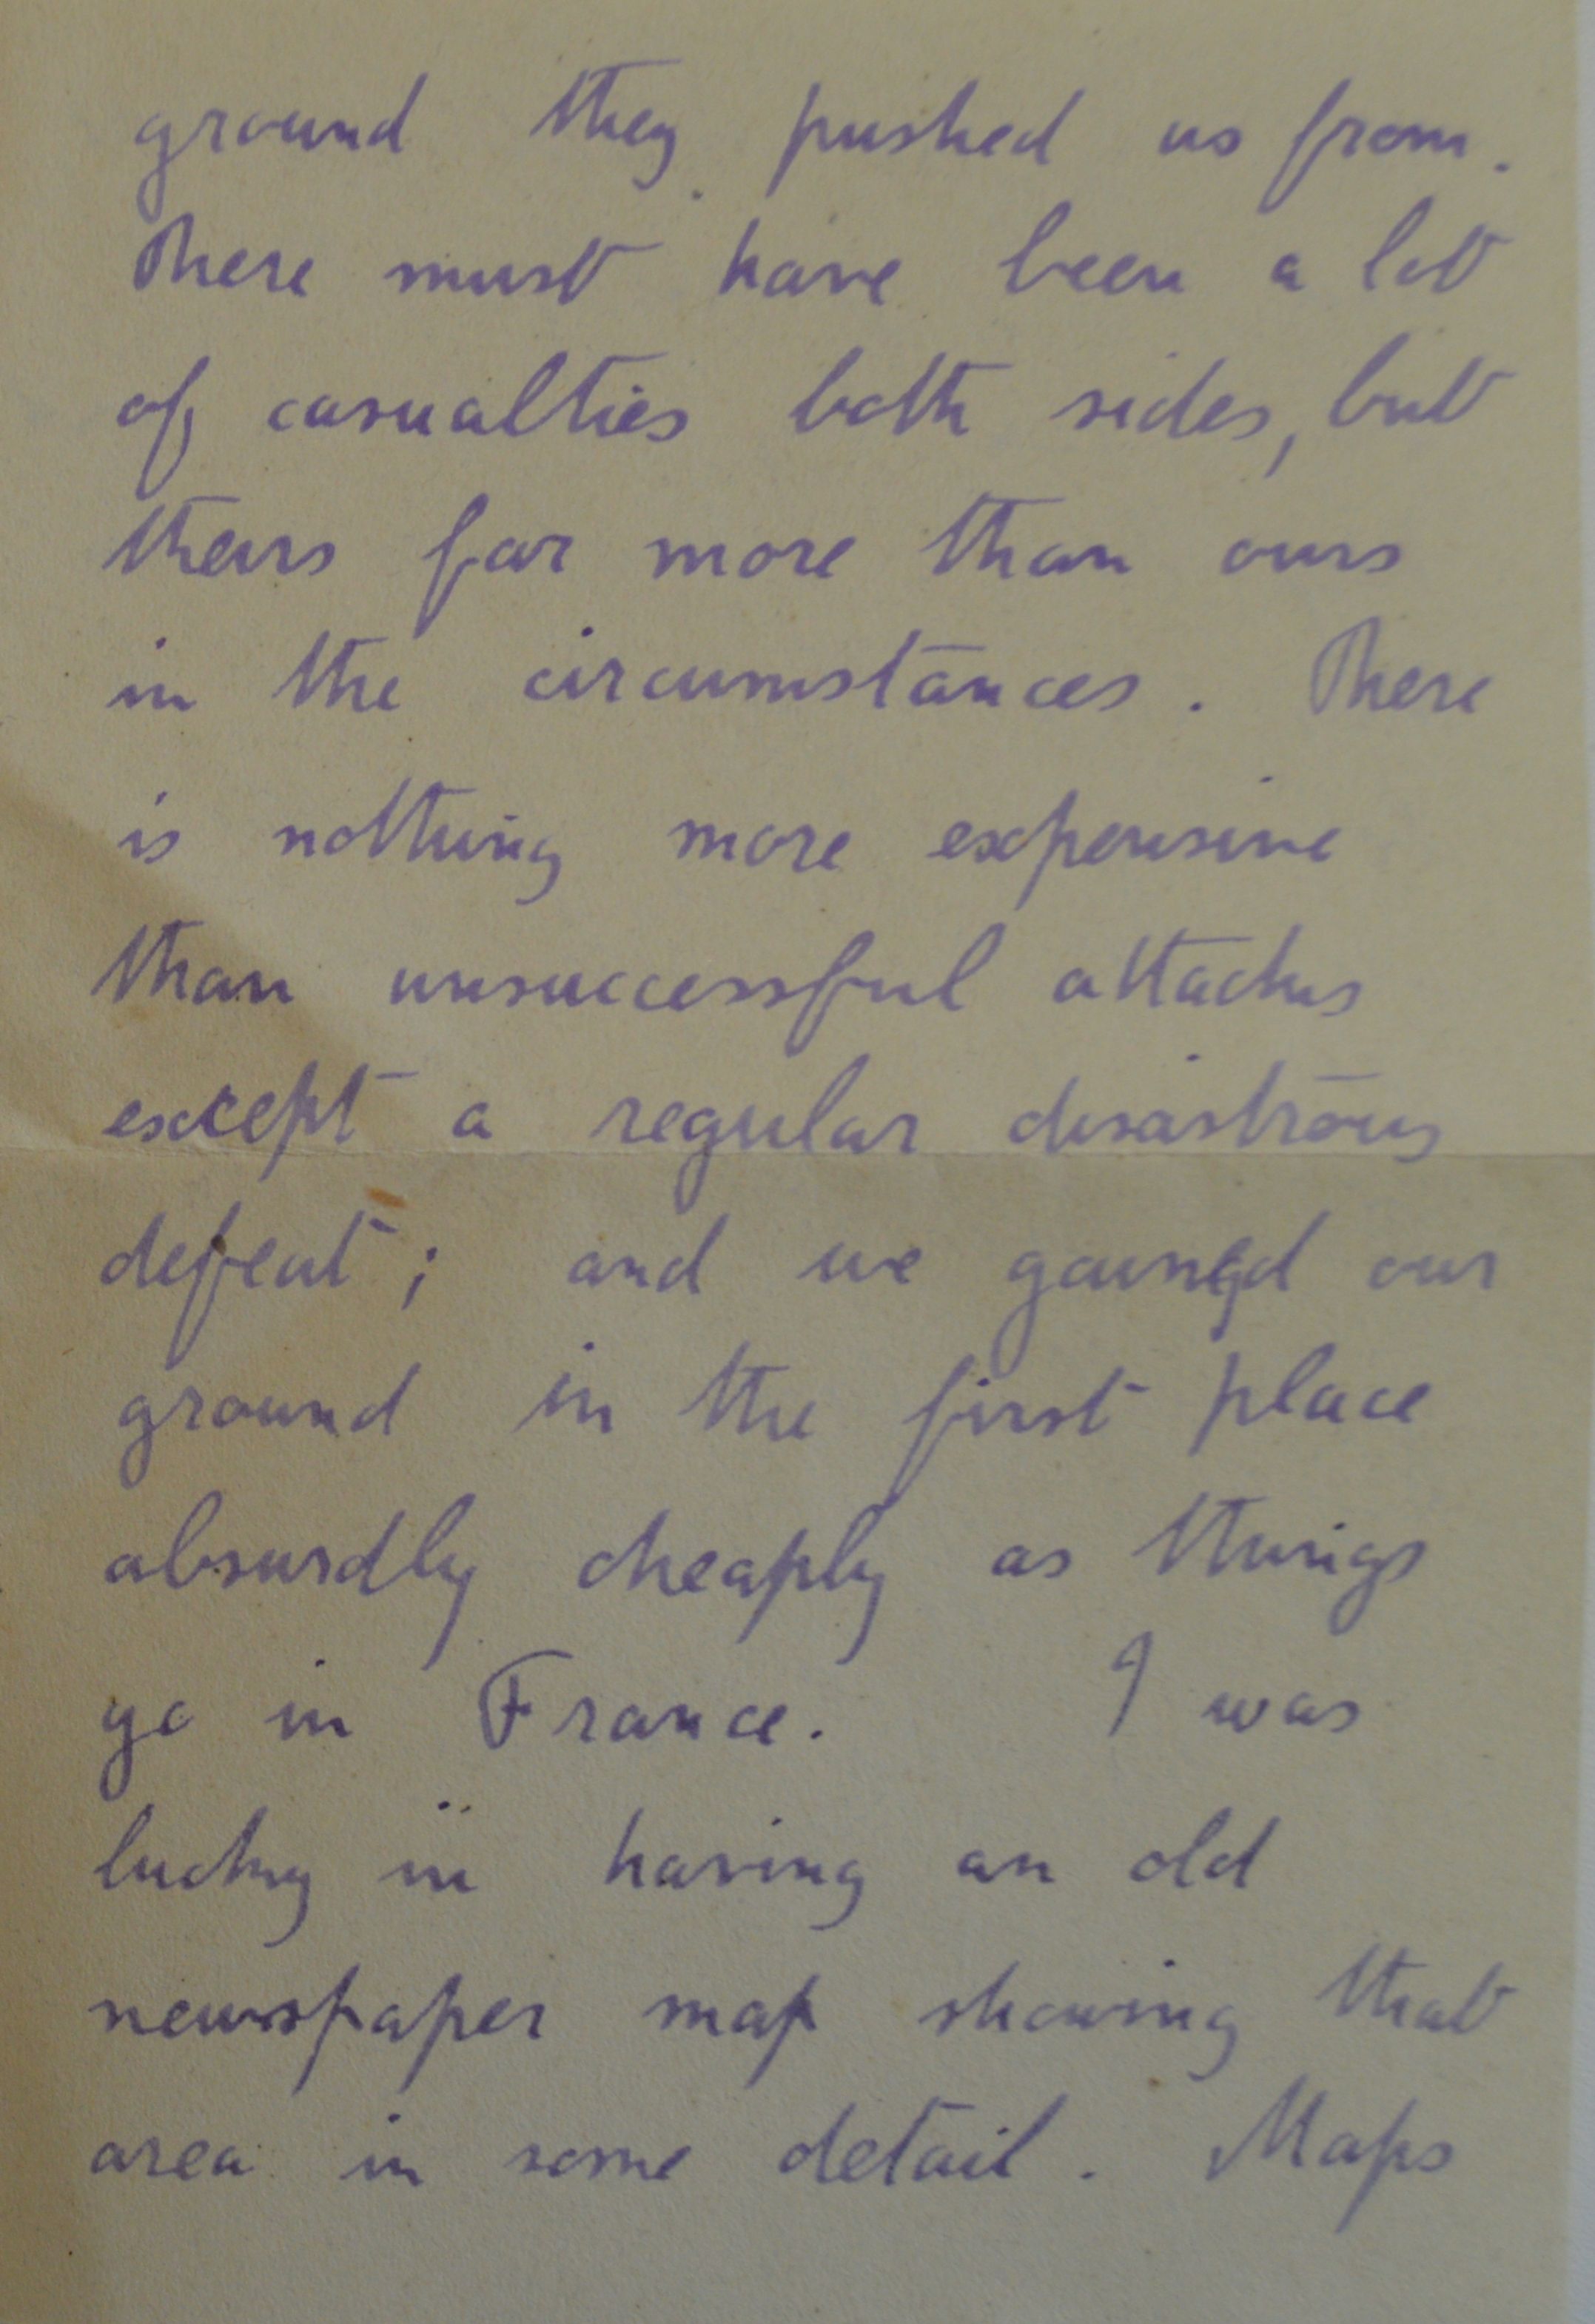 ground they pushed us from.
There must have been a lot
of casualties both sides, but
theirs far more than ours
in the circumstances. There
is nothing more expensive
than unsuccessful attacks
except a regular disastrous
defeat; and we gained our
ground in the first place
absurdly cheaply as things
go in France. I was
lucky in having an old
newspaper map showing that
area in some detail. Maps